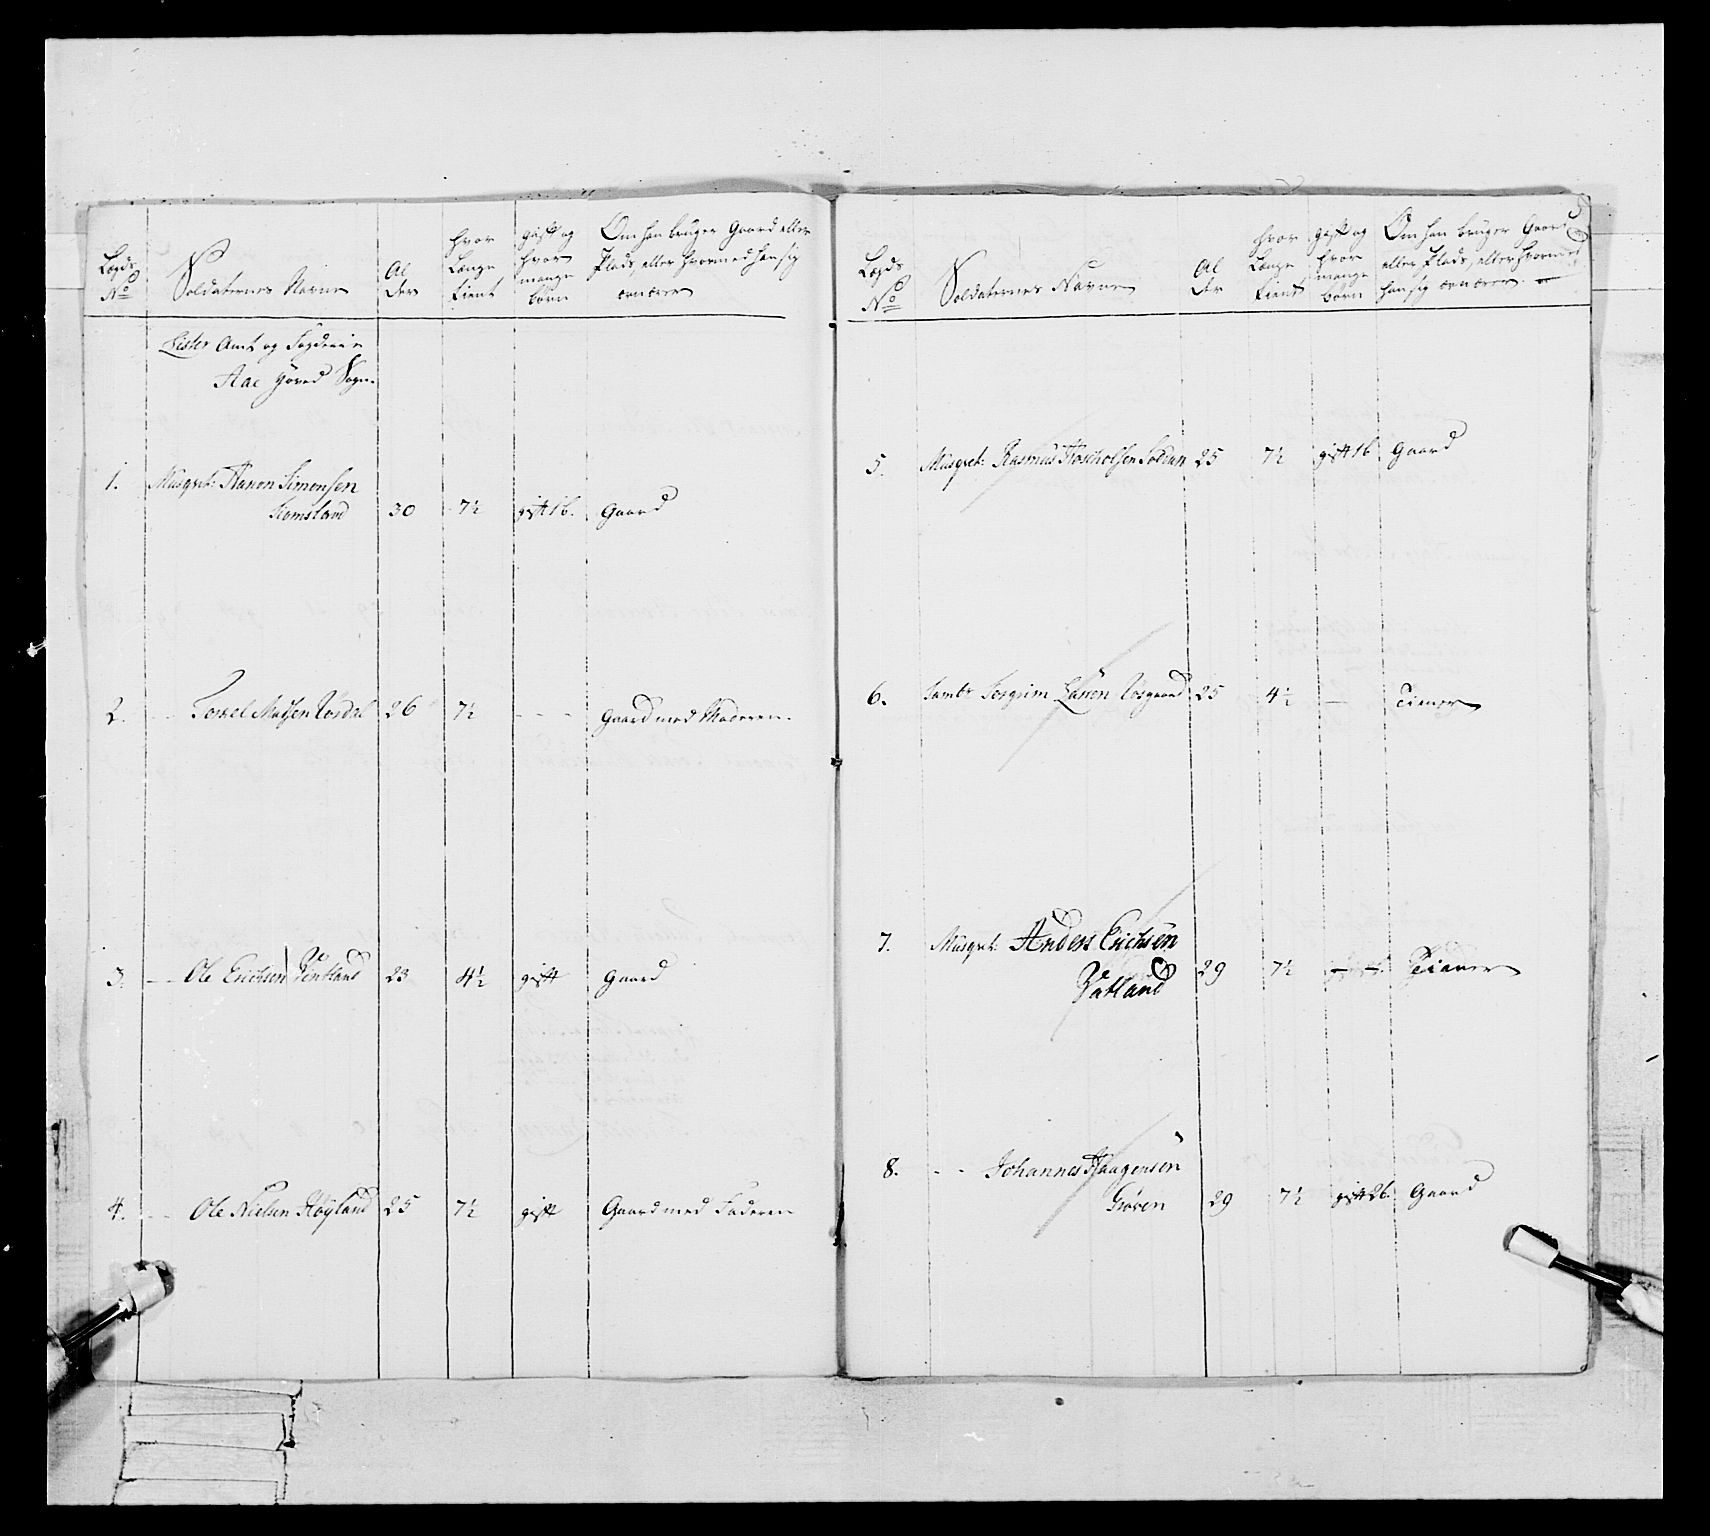 Lægds No | Soldaternes Navne | Al der | hvor Længe tient | gift og hvor mange børn | Om han bruger Gaard eller Plads, eller hvormed han sig ernærer
Lister Amt og Fogderie
Aae Sogn
1. Musqvet: Aanon Simonsen
Homsland 30 7½ gift 1 b. Gaard
2. - - Torkel Madsen 26 7½ - - - Gaard med Moderen.
3. - - Ole Erichsen Ventland 23 4½ gift Gaard
4. - - Ole Nielsen Høyland 25 7½ gift Gaard med Faderen
Lægds No | Soldaternes Navne | Al der | hvor Længe tient | gift og hvor mange børn | Om han bruger Gaard eller Plads, eller hvormed han sig ernærer
5. Musqvet: Rasmus 25 7½ gift 1 b Gaard
6. Tamb: Torgrim 25 4½ — Tiener
7. Musqvet: Anders Erichsen
Vatland 29 7½ — Tiener
8. - - Johannes Haagensen
29 7½ gift 2 b. Gaard